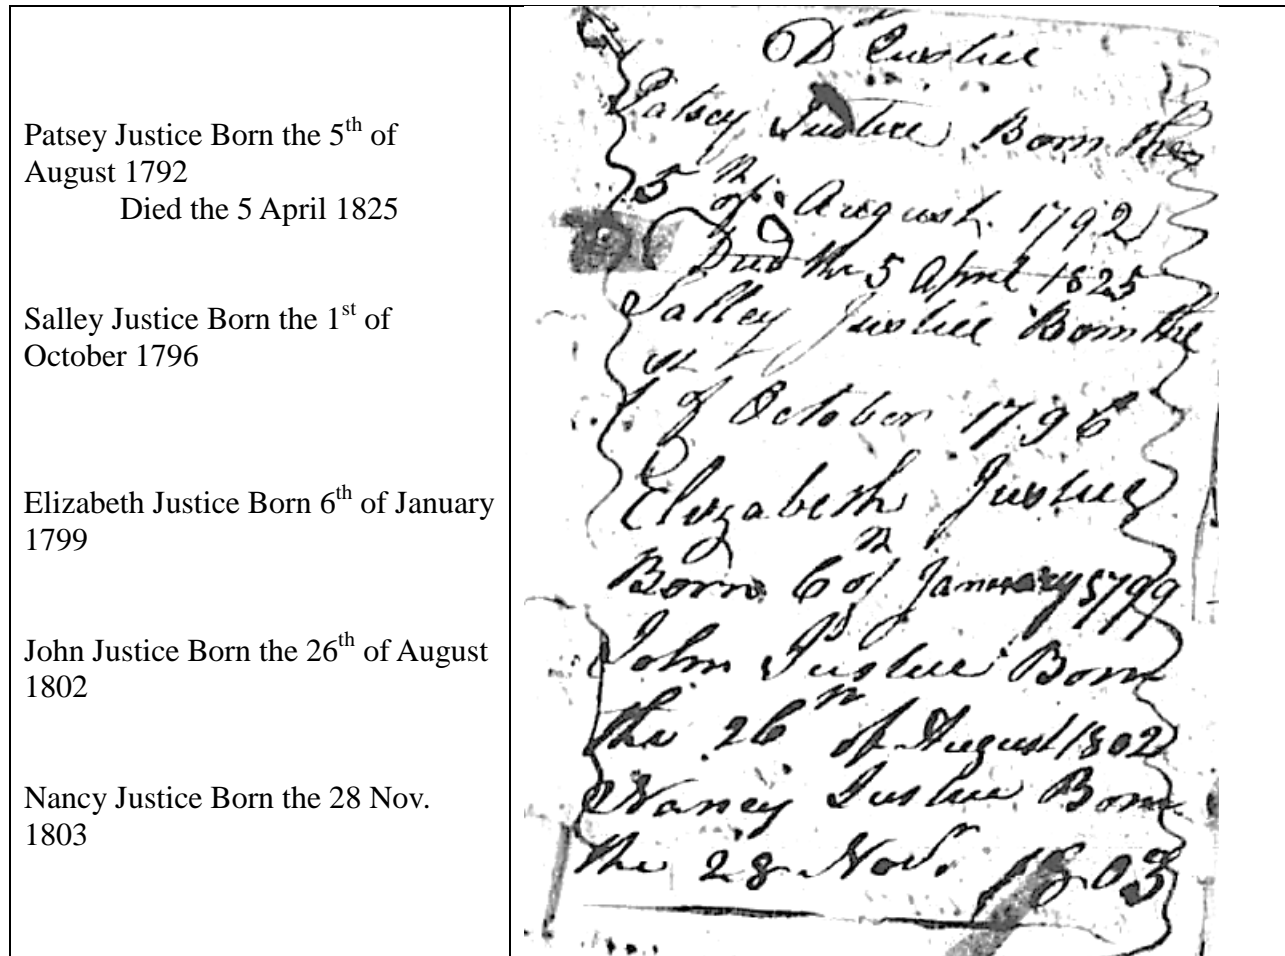 Patsey Justice Born the 5th of
August 1792
Died the 5 April 1825
Salley Justice Born the 1st of
October 1796
Elizabeth Justice Born 6th of January
1799
John Justice Born the 26th of August
1802
Nancy Justice Born the 28 Nov.
1803
Justice
Patsey Justice Born the
5th of August. 1792
Died the 5 April 1825
Salley Justice Born the
1st of October 1796
Elizabeth Justice
Born 6th of January 1799
John Justice Born
the 26th of August 1802
Nancy Justice Born
the 28 Novr. 1803